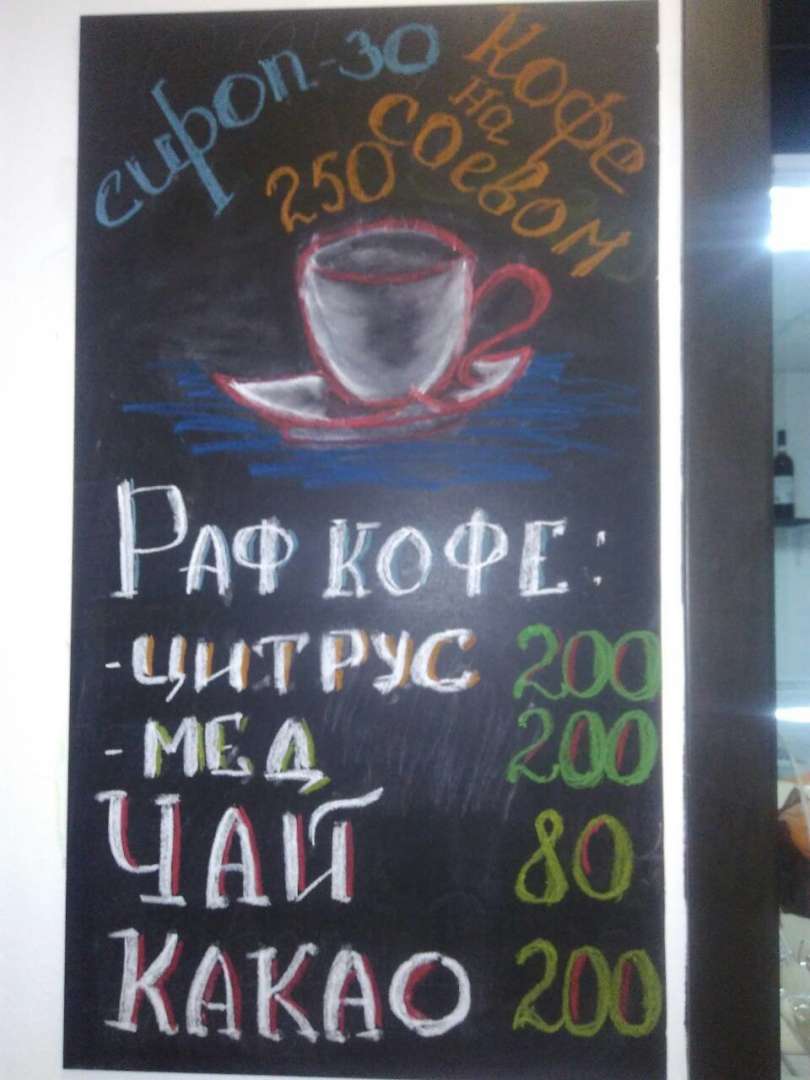 сироп-30
Кофе
на
соевом
250
РАФ КОФЕ:
-ЦИТРУС 200
-МЕД 200
ЧАЙ 80
КАКАО 200